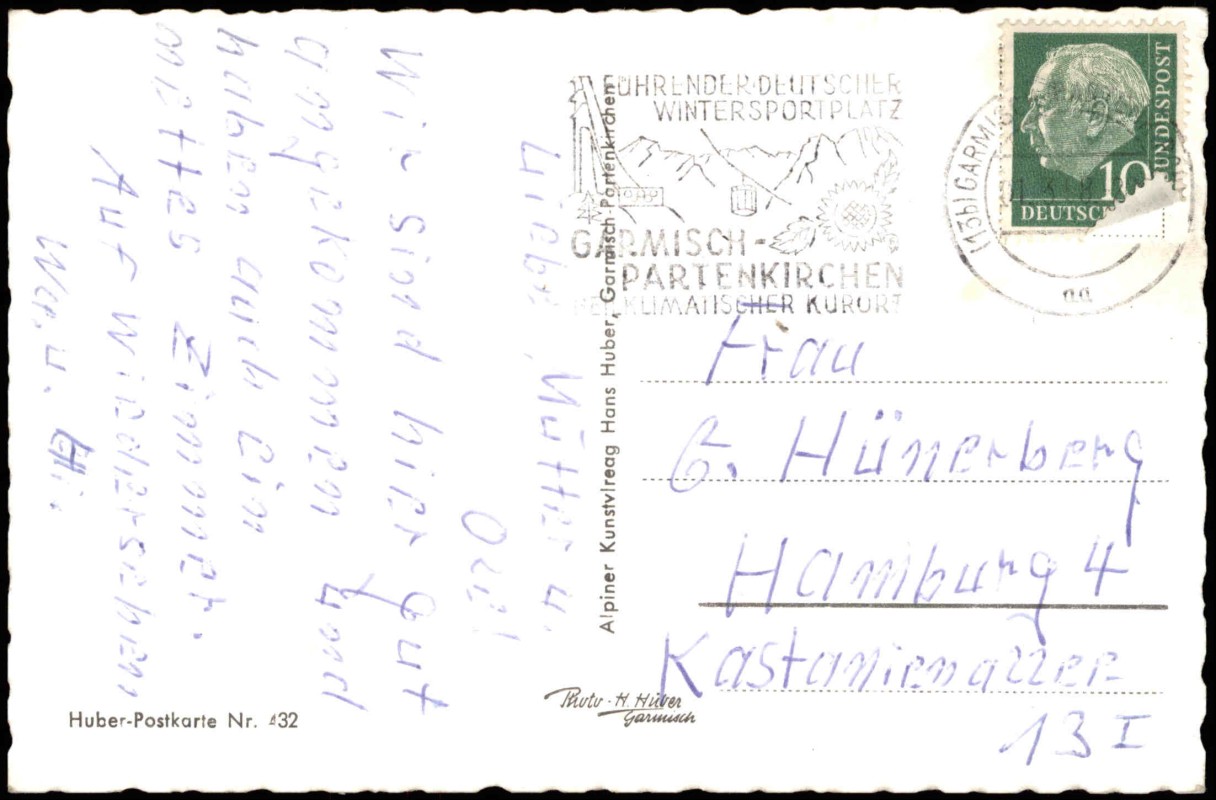 FÜHRENDER·DEUTSCHER
WINTERSPORTPLATZ
GARMISCH-
PARTENKIRCHEN
KLIMATISCHER KURORT
(13b) GARMI
aa
BUNDESPOST
10
DEUTSC
Liebe Mutter u.
Wir sind hier gut
angekommen und
haben auch ein
nettes Zimmer.
Auf Wiedersehen
Frau
G. Hünerberg
Hamburg 4
Kastanienallee
13 I
Alpiner Kunstvlreag Hans Huber, Garmisch-Partenkirchen
Photo - H. Huber
Garmisch
Huber-Postkarte Nr. 432